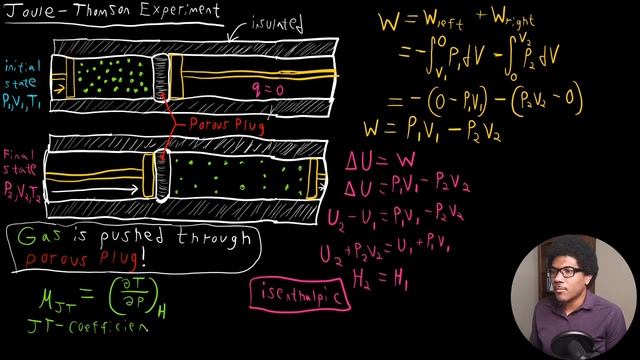 Joule-Thomson Experiment
insulated
initial
state
P₁,V₁,T₁
q=0
Porous Plug
Final
state
P₂,V₂,T₂
Gas is pushed through
porous plug!
μ_JT = (∂T/∂P)_H
JT-coefficien
W = W_left + W_right
= -∫_{V₁}^{0} P₁dV - ∫_{0}^{V₂} P₂dV
= -(0-P₁V₁) - (P₂V₂-0)
W = P₁V₁ - P₂V₂
ΔU = W
ΔU = P₁V₁ - P₂V₂
U₂ - U₁ = P₁V₁ - P₂V₂
U₂ + P₂V₂ = U₁ + P₁V₁
H₂ = H₁
isenthalpic